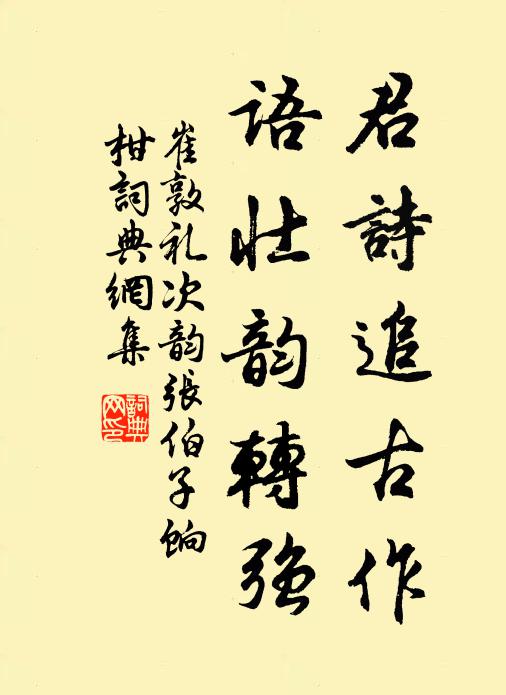 君詩追古作
语壮韵轉强
崔敦礼次韵張伯子餉
柑詞典網集
詞典
网印